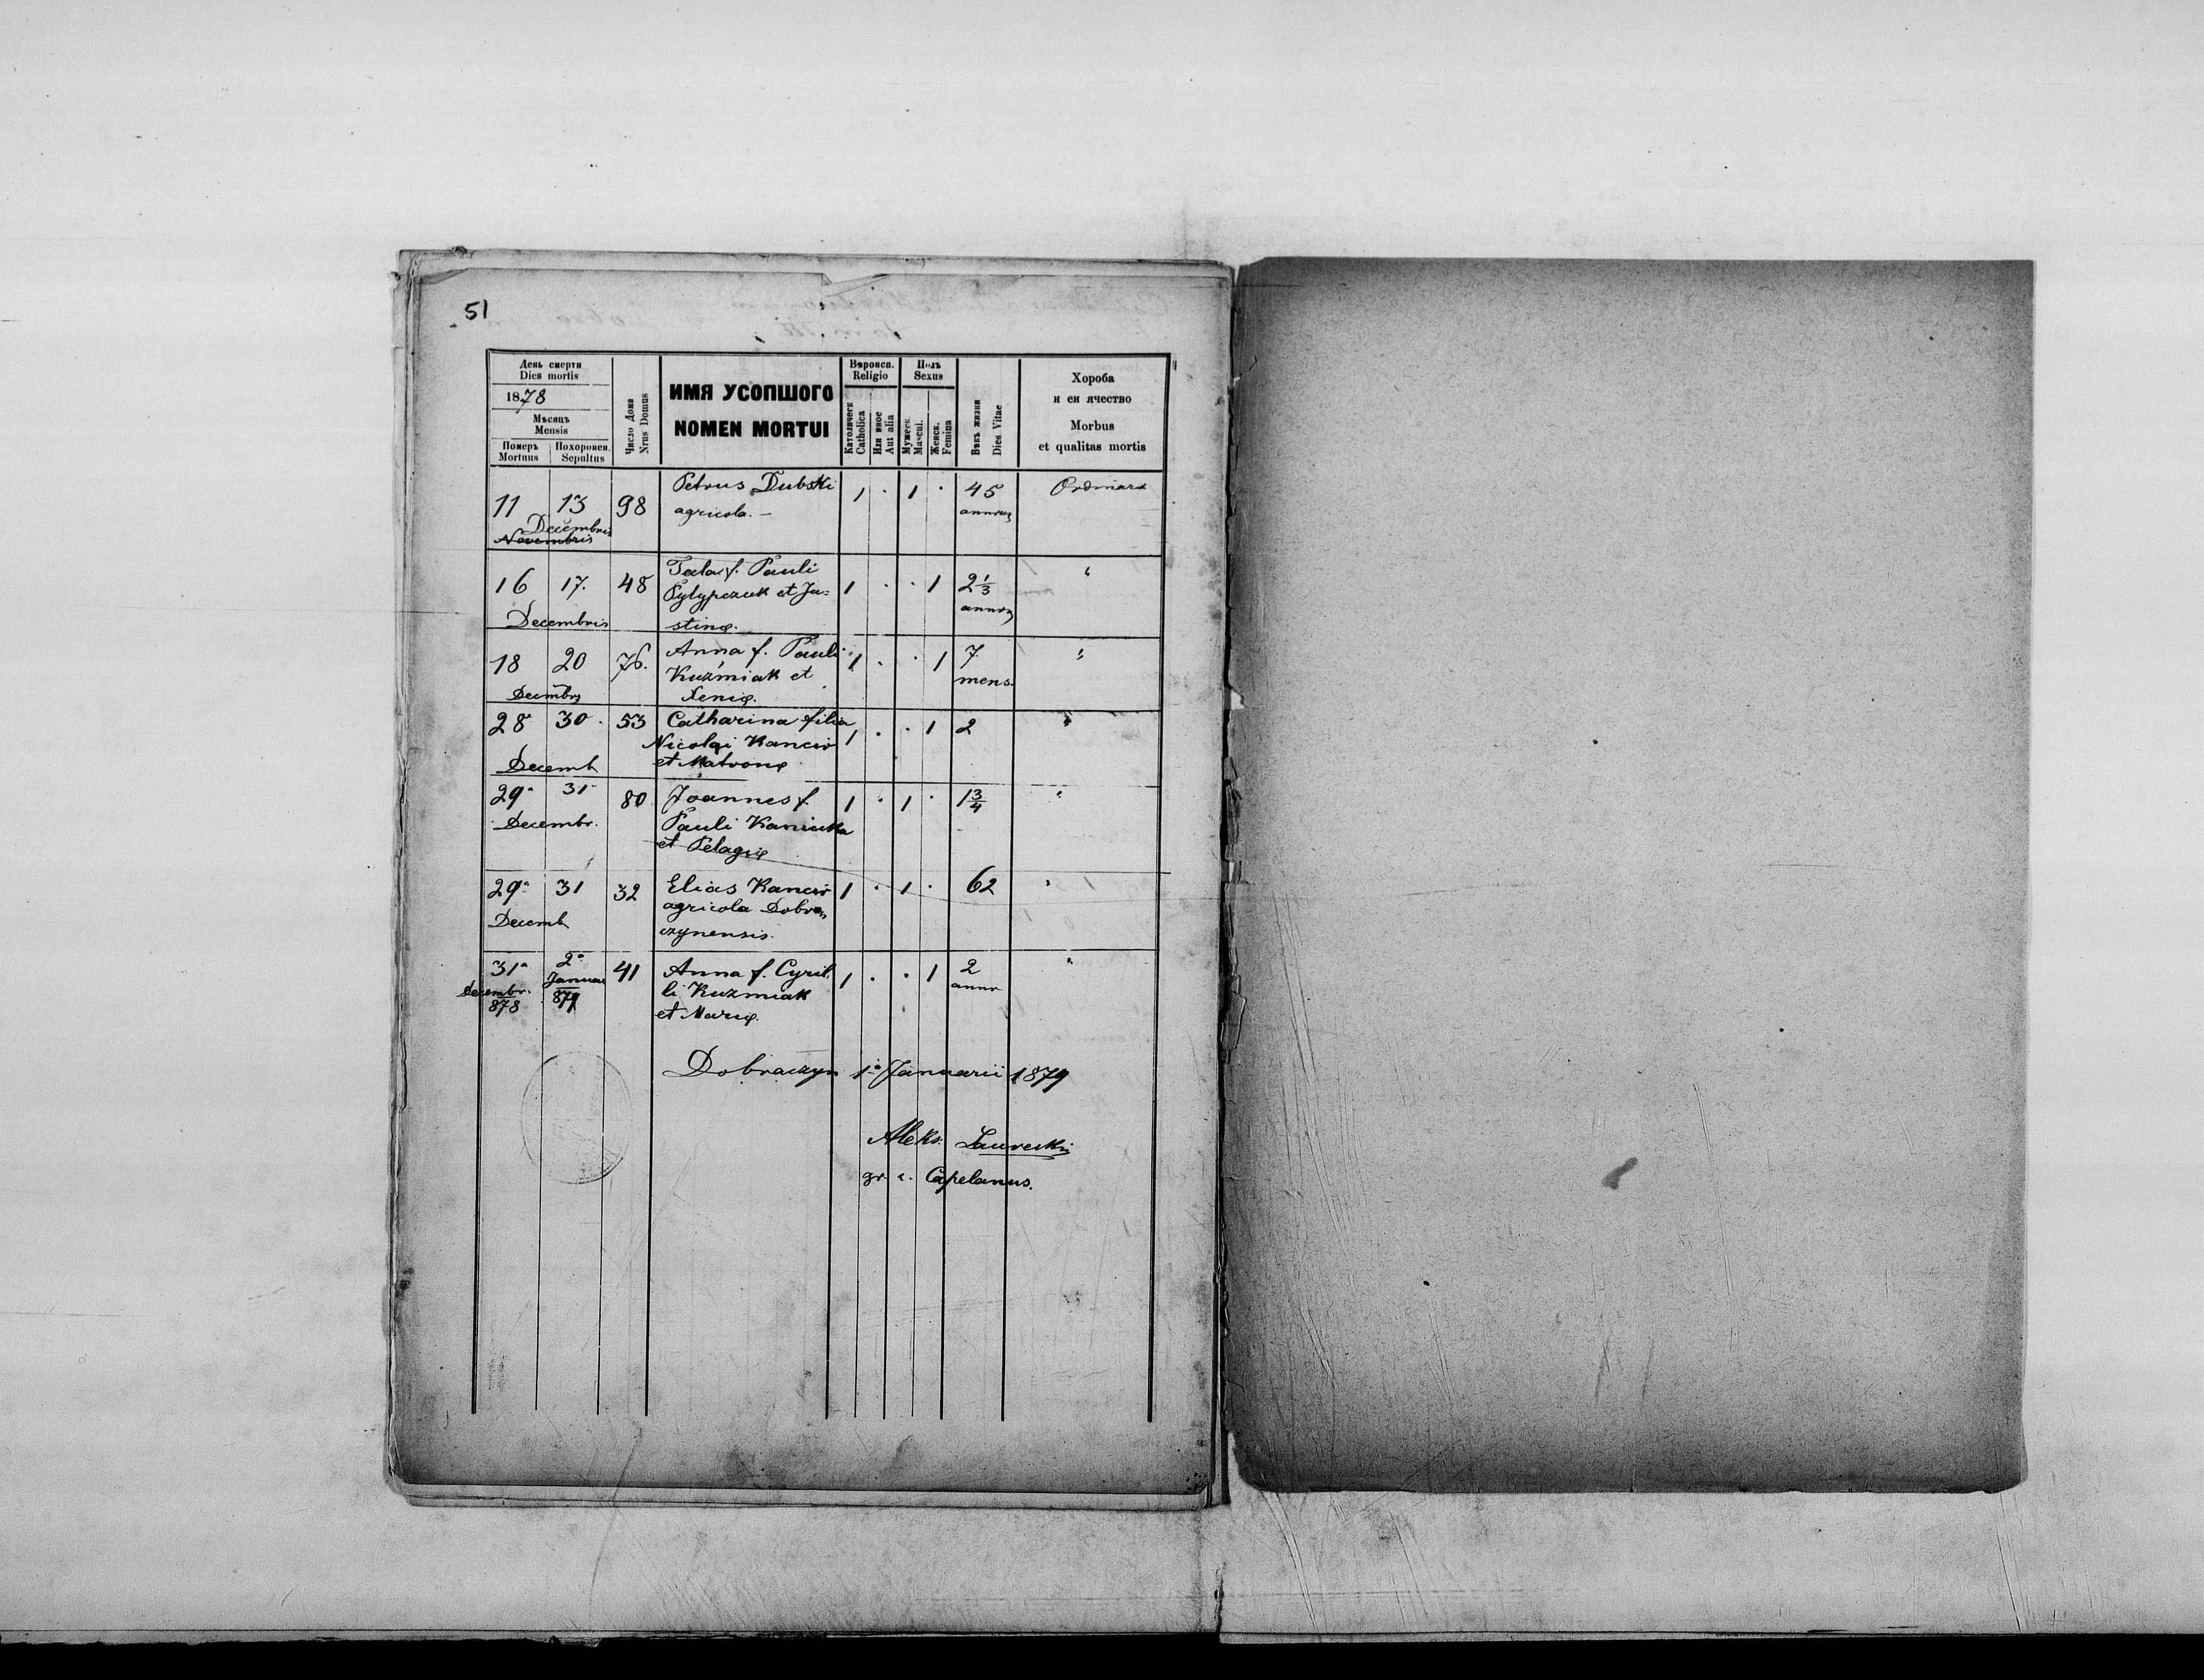 51
День смерти
Dies mortis
1878
Мѣсяць
Mensis
Померъ Похоронен.
Mortuus Sepultus
Число Дома
Nrus Domus
ИМЯ УСОПШОГО
NOMEN MORTUI
Вѣроисп.
Religio
Католическ
Catholica
Или иное
Aut alia
Полъ
Sexus
Мужеск.
Mascul.
Женск.
Femina
Вѣкъ жизни
Dies Vitae
Хороба
и еи ячество
Morbus
et qualitas mortis
11 13 98 Petrus Dubski 1 . 1 . 45 Ordinara
agricola. — annorum
Decembris
Novembris
16 17. 48 Tala f. Pauli 1 . . 1 2 1/3 "
Pylypczuk et Ju=
Decembris stinæ.
18 20 76. Anna f. Pauli 1 . . 1 7 "
Kuźmiak et mens.
Decembris Xeniæ.
28 30 53 Catharina filia 1 . . 1 2 "
Nicolai Kanciv
Decemb et Matronæ
29 31 80 Joannes f. 1 . 1 . 1 3/4 "
Decembr. Pauli Kaniuka
et Pelagiæ
29 31 32 Elias Kanciv 1 . 1 . 62 "
Decemb agricola Dobra=
czynensis.
31a 2a 41 Anna f. Cyril= 1 . . 1 2 "
Decembr. Januar li Kuzmiak annor
878 879 et Mariæ.
Dobraczyn 1a Januarii 1879
Aleks. Laurecki
gr. c. Capelanus.